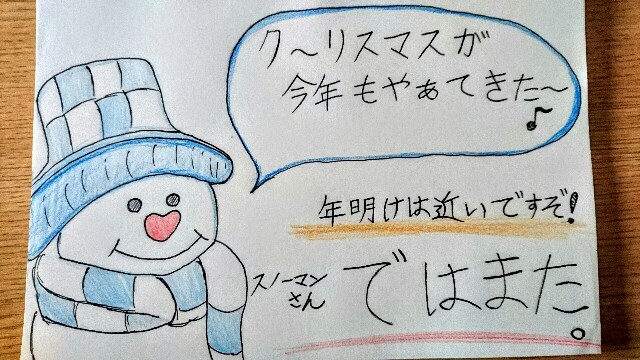 ク〜リスマスが
今年もやぁてきた〜♪
年明けは近いですぞ!
スノーマン
さん
ではまた。